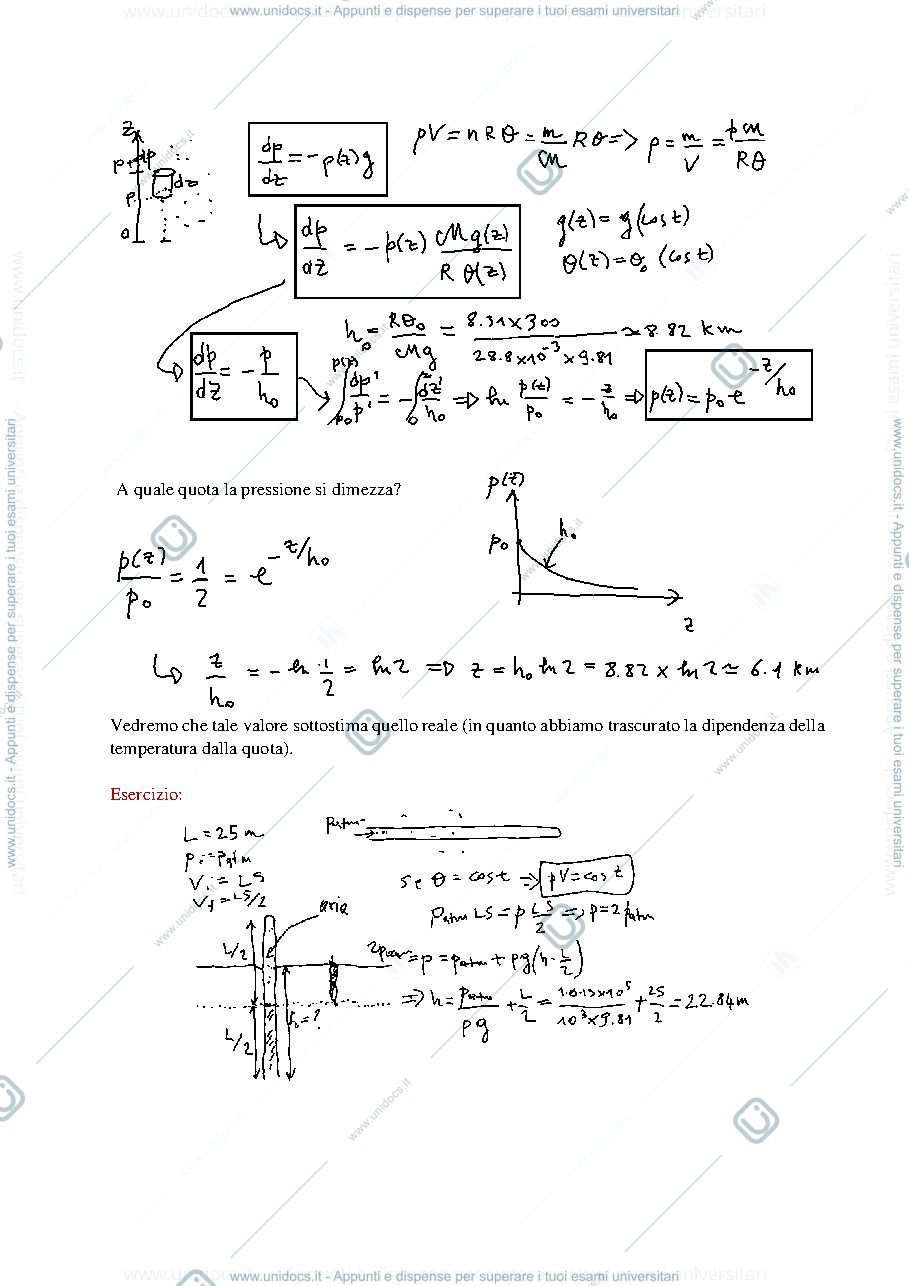 www.unidocs.it - Appunti e dispense per superare i tuoi esami universitari
z
p+dp
dz
p
0
dp/dz = -ρ(z)g
pV = nRθ = m/M Rθ => ρ = m/V = pM/Rθ
dp/dz = -p(z) Mg(z)/Rθ(z)
g(z) = g (cost)
θ(z) = θ₀ (cost)
h₀ = Rθ₀/Mg = 8.31×300/28.8×10⁻³×9.81 ≃ 8.82 km
dp/dz = -p/h₀
∫p₀^p(z) dp'/p' = -∫0^z dz'/h₀ => ln p(z)/p₀ = -z/h₀ => p(z) = p₀ e^-z/h₀
A quale quota la pressione si dimezza?
p(z)
p₀
h₀
z
p(z)/p₀ = 1/2 = e^-z/h₀
z/h₀ = -ln 1/2 = ln2 => z = h₀ ln2 = 8.82 × ln2 ≃ 6.1 km
Vedremo che tale valore sottostima quello reale (in quanto abbiamo trascurato la dipendenza della
temperatura dalla quota).
Esercizio:
L = 25 m
Pi = Patm
Vi = LS
Vf = LS/2
Patm
se θ = cost => pV = cost
Patm LS = p LS/2 => p = 2Patm
aria
L/2
L/2
h = ?
2Patm = p = patm + ρg(h - L/2)
=> h = Patm/ρg + L/2 = 1.013×10⁵/10³×9.81 + 25/2 = 22.84 m
www.unidocs.it - Appunti e dispense per superare i tuoi esami universitari